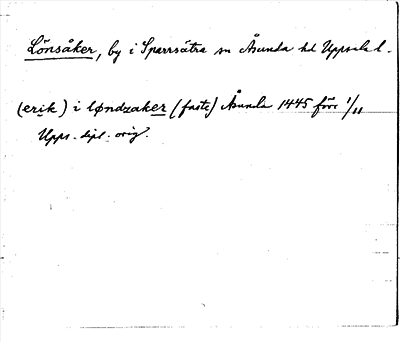 Lönsåker, by i Sparrsätra sn Åsunda hd Uppsala l.
(erik) i løndzaker (faste) Åsunda 1445 förr 1/11
Upps. dipl. orig.